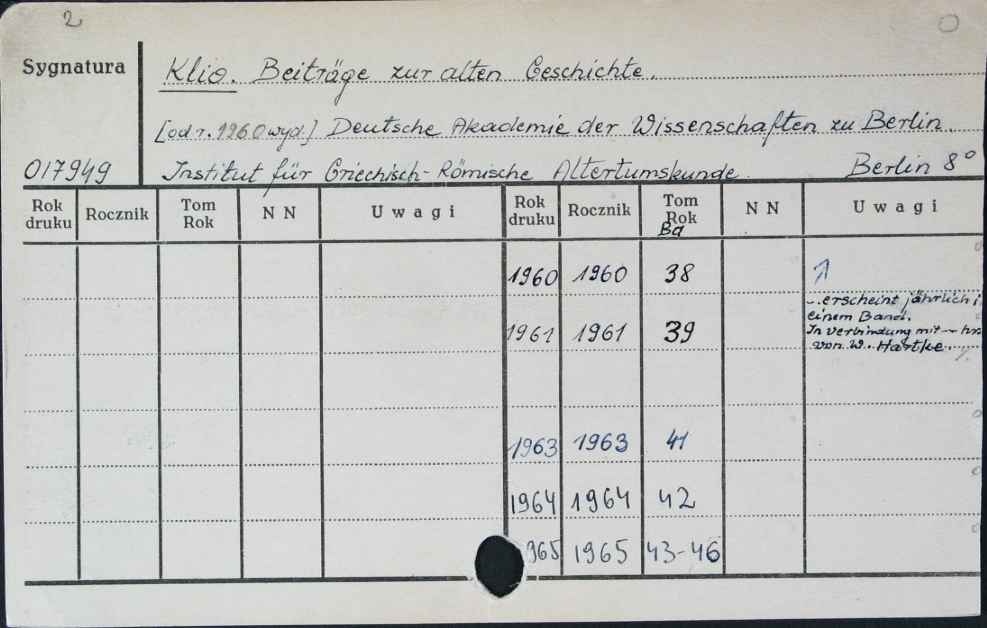 2
Sygnatura
Klio. Beiträge zur alten Geschichte.
[od r. 1960 wyd.] Deutsche Akademie der Wissenschaften zu Berlin.
017949 Institut für Griechisch-Römische Altertumskunde. Berlin 8°
Rok druku Rocznik Tom Rok N N Uwagi Rok druku Rocznik Tom Rok N N Uwagi
Bd
1960 1960 38
..erscheint jährlich i
einem Band.
1961 1961 39 In Verbindung mit - hr
von W. Hartke.
1963 1963 41
1964 1964 42
965 1965 43-46